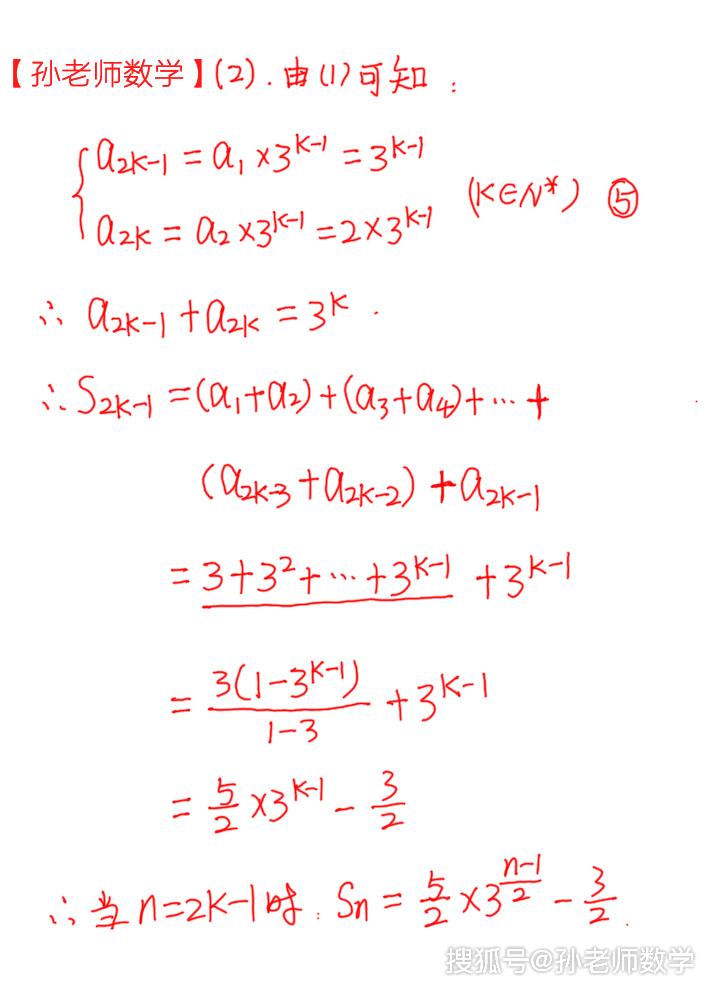 【孙老师数学】(2).由(1)可知:
a₂ₖ₋₁ = a₁×3ᵏ⁻¹ = 3ᵏ⁻¹
(K∈N*) ⑤
a₂ₖ = a₂×3ᵏ⁻¹ = 2×3ᵏ⁻¹
∴ a₂ₖ₋₁+a₂ₖ = 3ᵏ.
∴ S₂ₖ₋₁ = (a₁+a₂)+(a₃+a₄)+…+
(a₂ₖ₋₃+a₂ₖ₋₂)+a₂ₖ₋₁
= 3+3²+…+3ᵏ⁻¹ +3ᵏ⁻¹
= 3(1-3ᵏ⁻¹)/(1-3) + 3ᵏ⁻¹
= 5/2 ×3ᵏ⁻¹ - 3/2
∴当n=2K-1时: Sₙ = 5/2 ×3^((n-1)/2) - 3/2.
搜狐号@孙老师数学